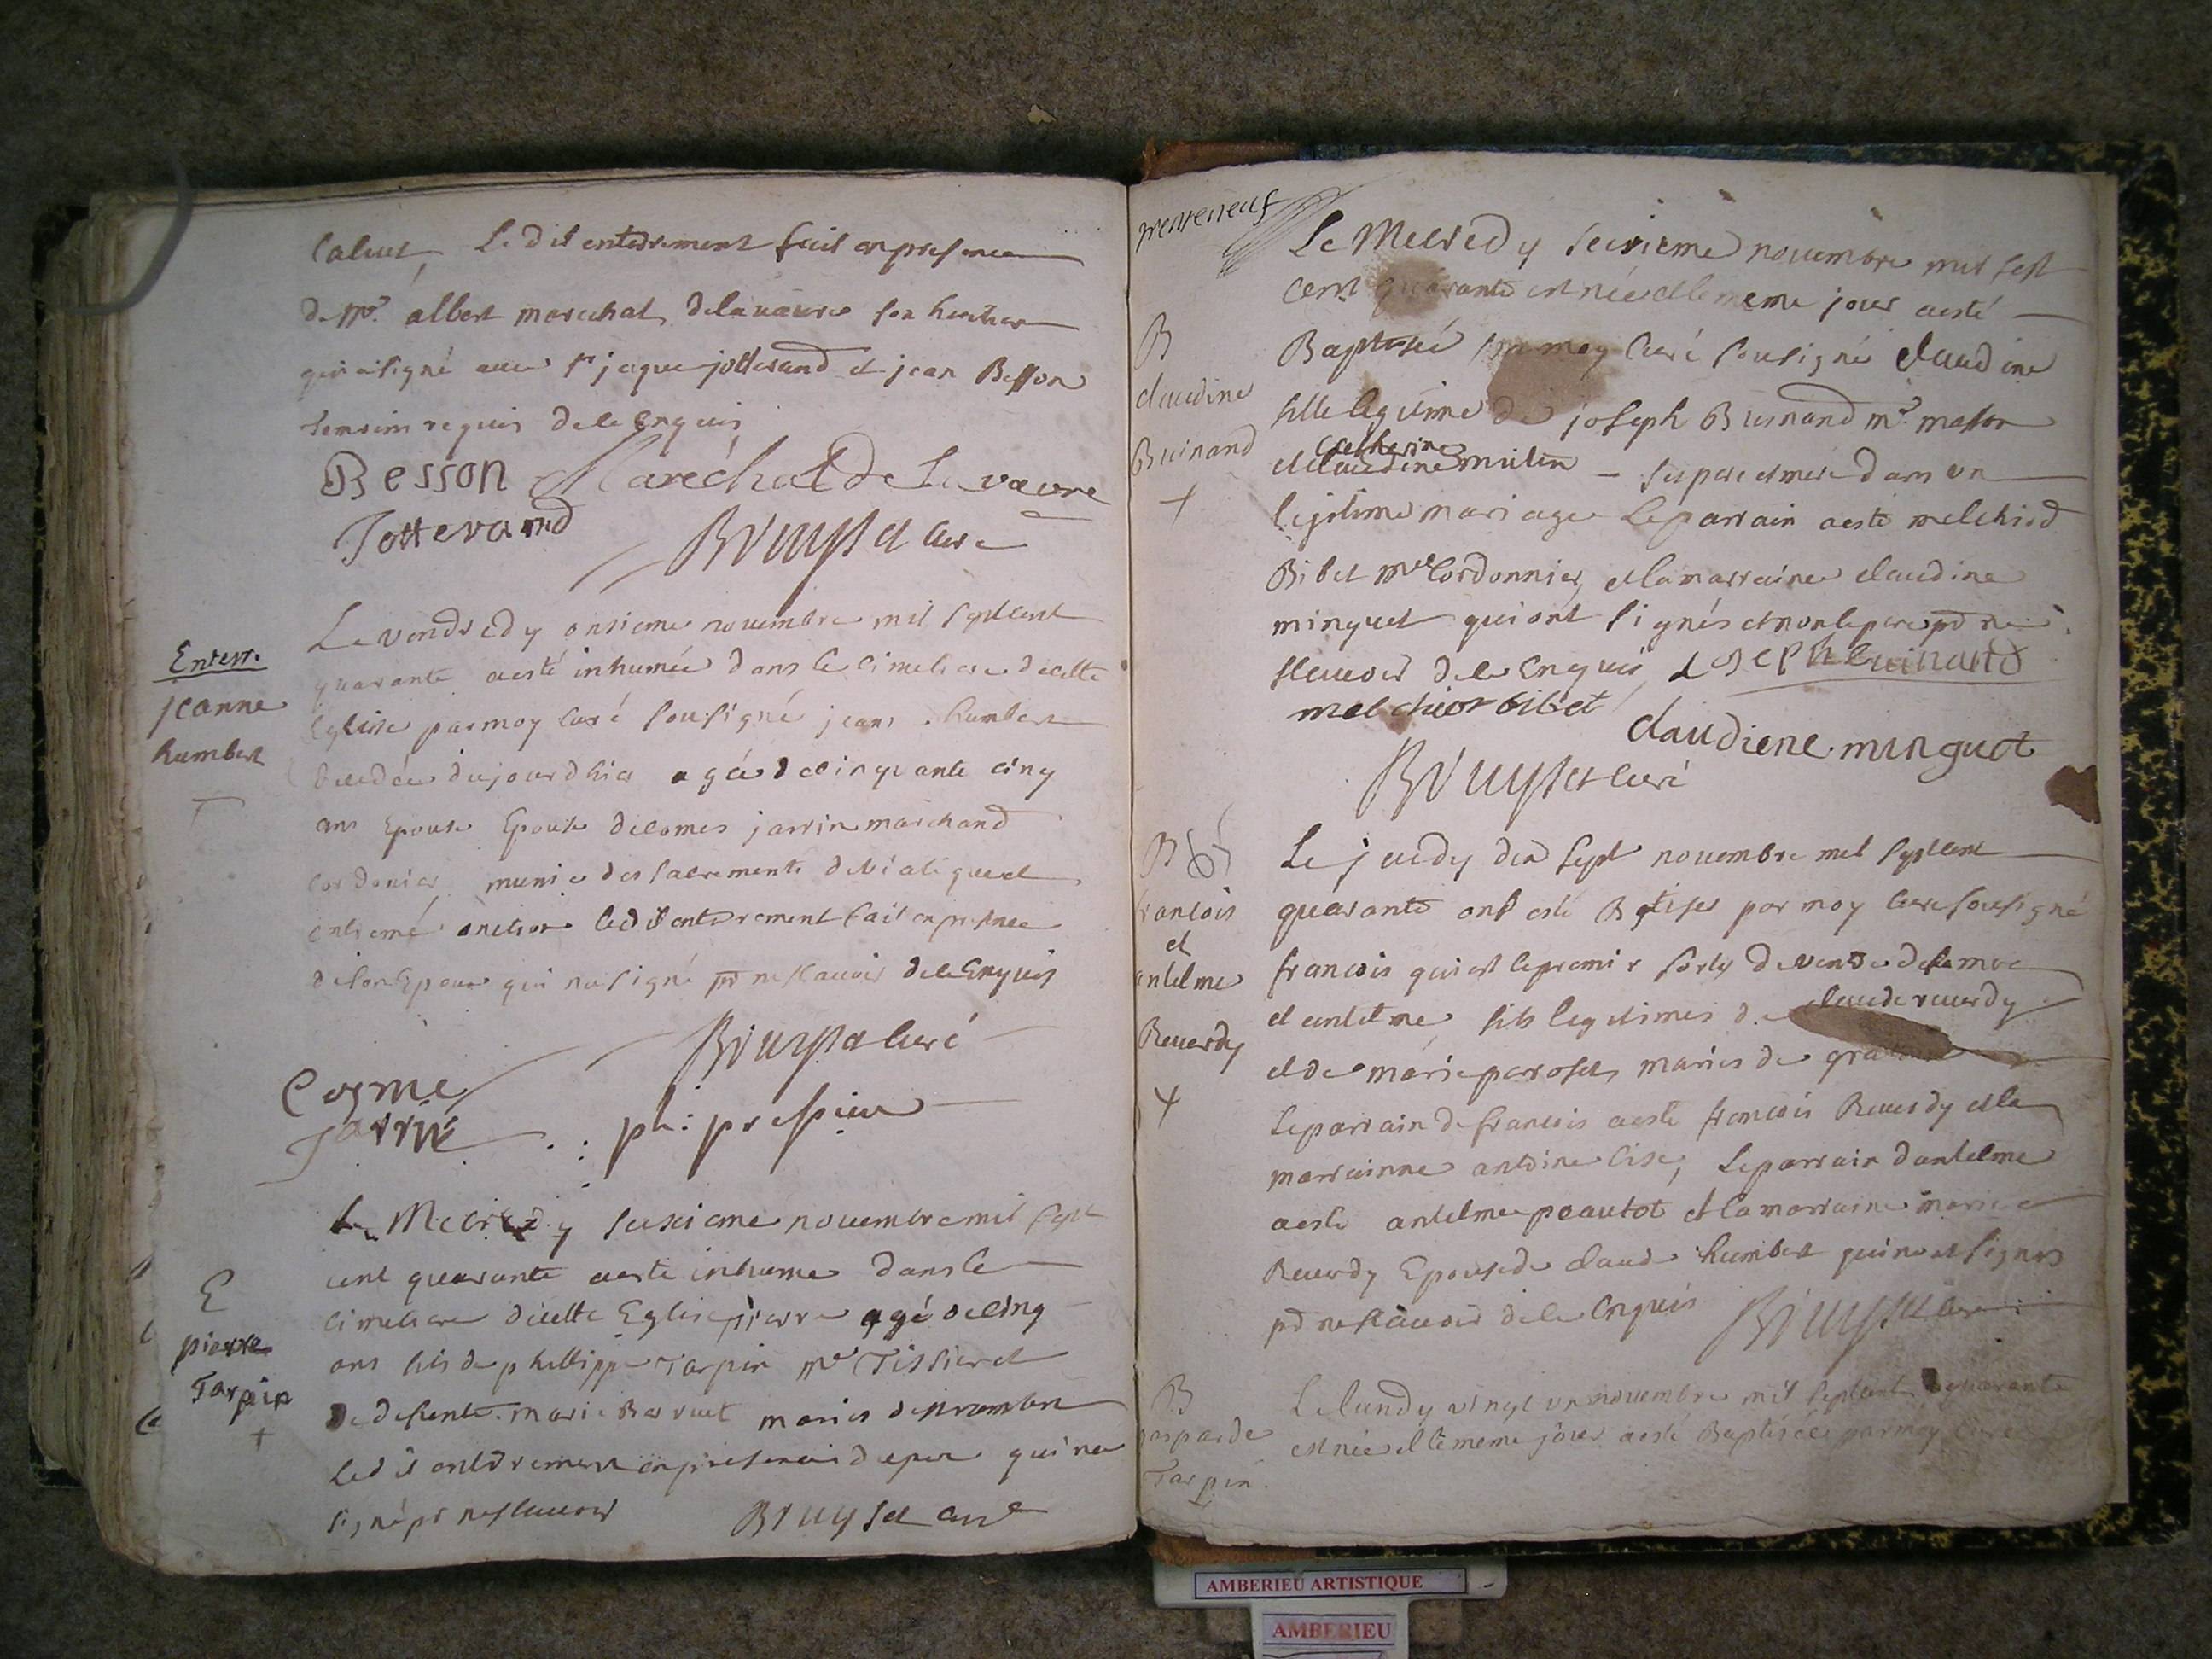 Calvet, Le dit enterrement fait en presence
de Mr. albert marechal delavaure son heritier
qui a signé avec sr jaque jotterand et jean Besson
temoins requis de ce Enquis
Besson Maréchal De Lavavre
Jotterand Bruyset curé
Enterr.
jeanne
humbert
Le vendredy onsieme novembre mil sept cent
quarante aesté inhumée dans le cimetiere de cette
Eglise par moy curé sousigné jeane humbert
decedée du jour dhier agée de cinquante cinq
ans Epouse Epouse de comes jarrin marchand
cordonier munie des sacrements de viatique et
extreme onction ledit enterrement fait en presence
de son Epoux qui na signé pr ne scavoir de ce Enquis
Bruyset curé
Cosme
Jarrin
E
pierre
Tarpin
+
Le Mecredy seisieme novembre mil sept
cent quarante aeste inhume dans le
cimetiere de cette Eglise pierre agé de cinq
ans fils de phillippe Tarpin Me Tissier et
de defunte marie Barruet maries
led it enterrement en presence du pere qui na
signé pr ne scavoir Bruyset curé
trenteneuf
B
claudine
Buinand
+
Le Mecredy seisieme novembre mil sept
cent quarante est née et le meme jour aesté
Baptisée par moy curé sousigné claudine
fille legitime de joseph Buinand me masson
catherine
et claudine milin ses pere et mere dans un
legitime mariage Le parrain aesté melchiod
Bibet me Cordonnier, et la marraine claudine
minguet qui ont signés et non le pere pr ne
scavoir de ce Enquis joseph buinand
melchior bibet
claudiene minguet
Bruyset curé
B B
francois
et
antelme
Reverdy
+
Le jeudy dix sept novembre mil sept cent
quarante ont esté Batises par moy curé sousigné
francois qui est le premier sorty de ventre de sa mere
et antelme fils legitimes de claude reverdy
et de marie peroset, maries de
Le parrain de francois aesté francois Reverdy et la
marrainne antoine Lise, Le parrain dantelme
aesté antelme peautot et la marraine marie
Reverdy Epouse de claude humbert qui nont signes
pr ne scavoir de ce Enquis Bruyset curé
B
gasparde
Tarpin
Le lundy vingt un novembre mil sept cent quarante
est née et le meme jour aesté Baptisée par moy curé
AMBERIEU ARTISTIQUE
AMBERIEU